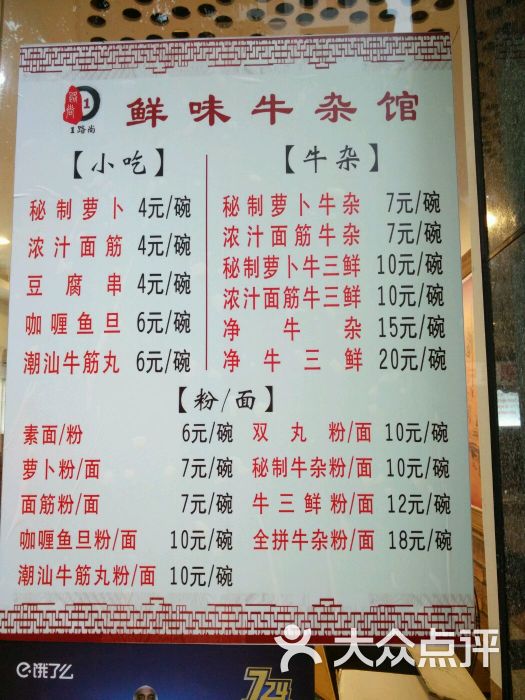 路尚
1
1路尚
鲜味牛杂馆
【小吃】
秘制萝卜 4元/碗
浓汁面筋 4元/碗
豆腐串 4元/碗
咖喱鱼旦 6元/碗
潮汕牛筋丸 6元/碗
【牛杂】
秘制萝卜牛杂 7元/碗
浓汁面筋牛杂 7元/碗
秘制萝卜牛三鲜 10元/碗
浓汁面筋牛三鲜 10元/碗
净牛杂 15元/碗
净牛三鲜 20元/碗
【粉/面】
素面/粉 6元/碗
萝卜粉/面 7元/碗
面筋粉/面 7元/碗
咖喱鱼旦粉/面 10元/碗
潮汕牛筋丸粉/面 10元/碗
双丸粉/面 10元/碗
秘制牛杂粉/面 10元/碗
牛三鲜粉/面 12元/碗
全拼牛杂粉/面 18元/碗
饿了么
724
大众点评